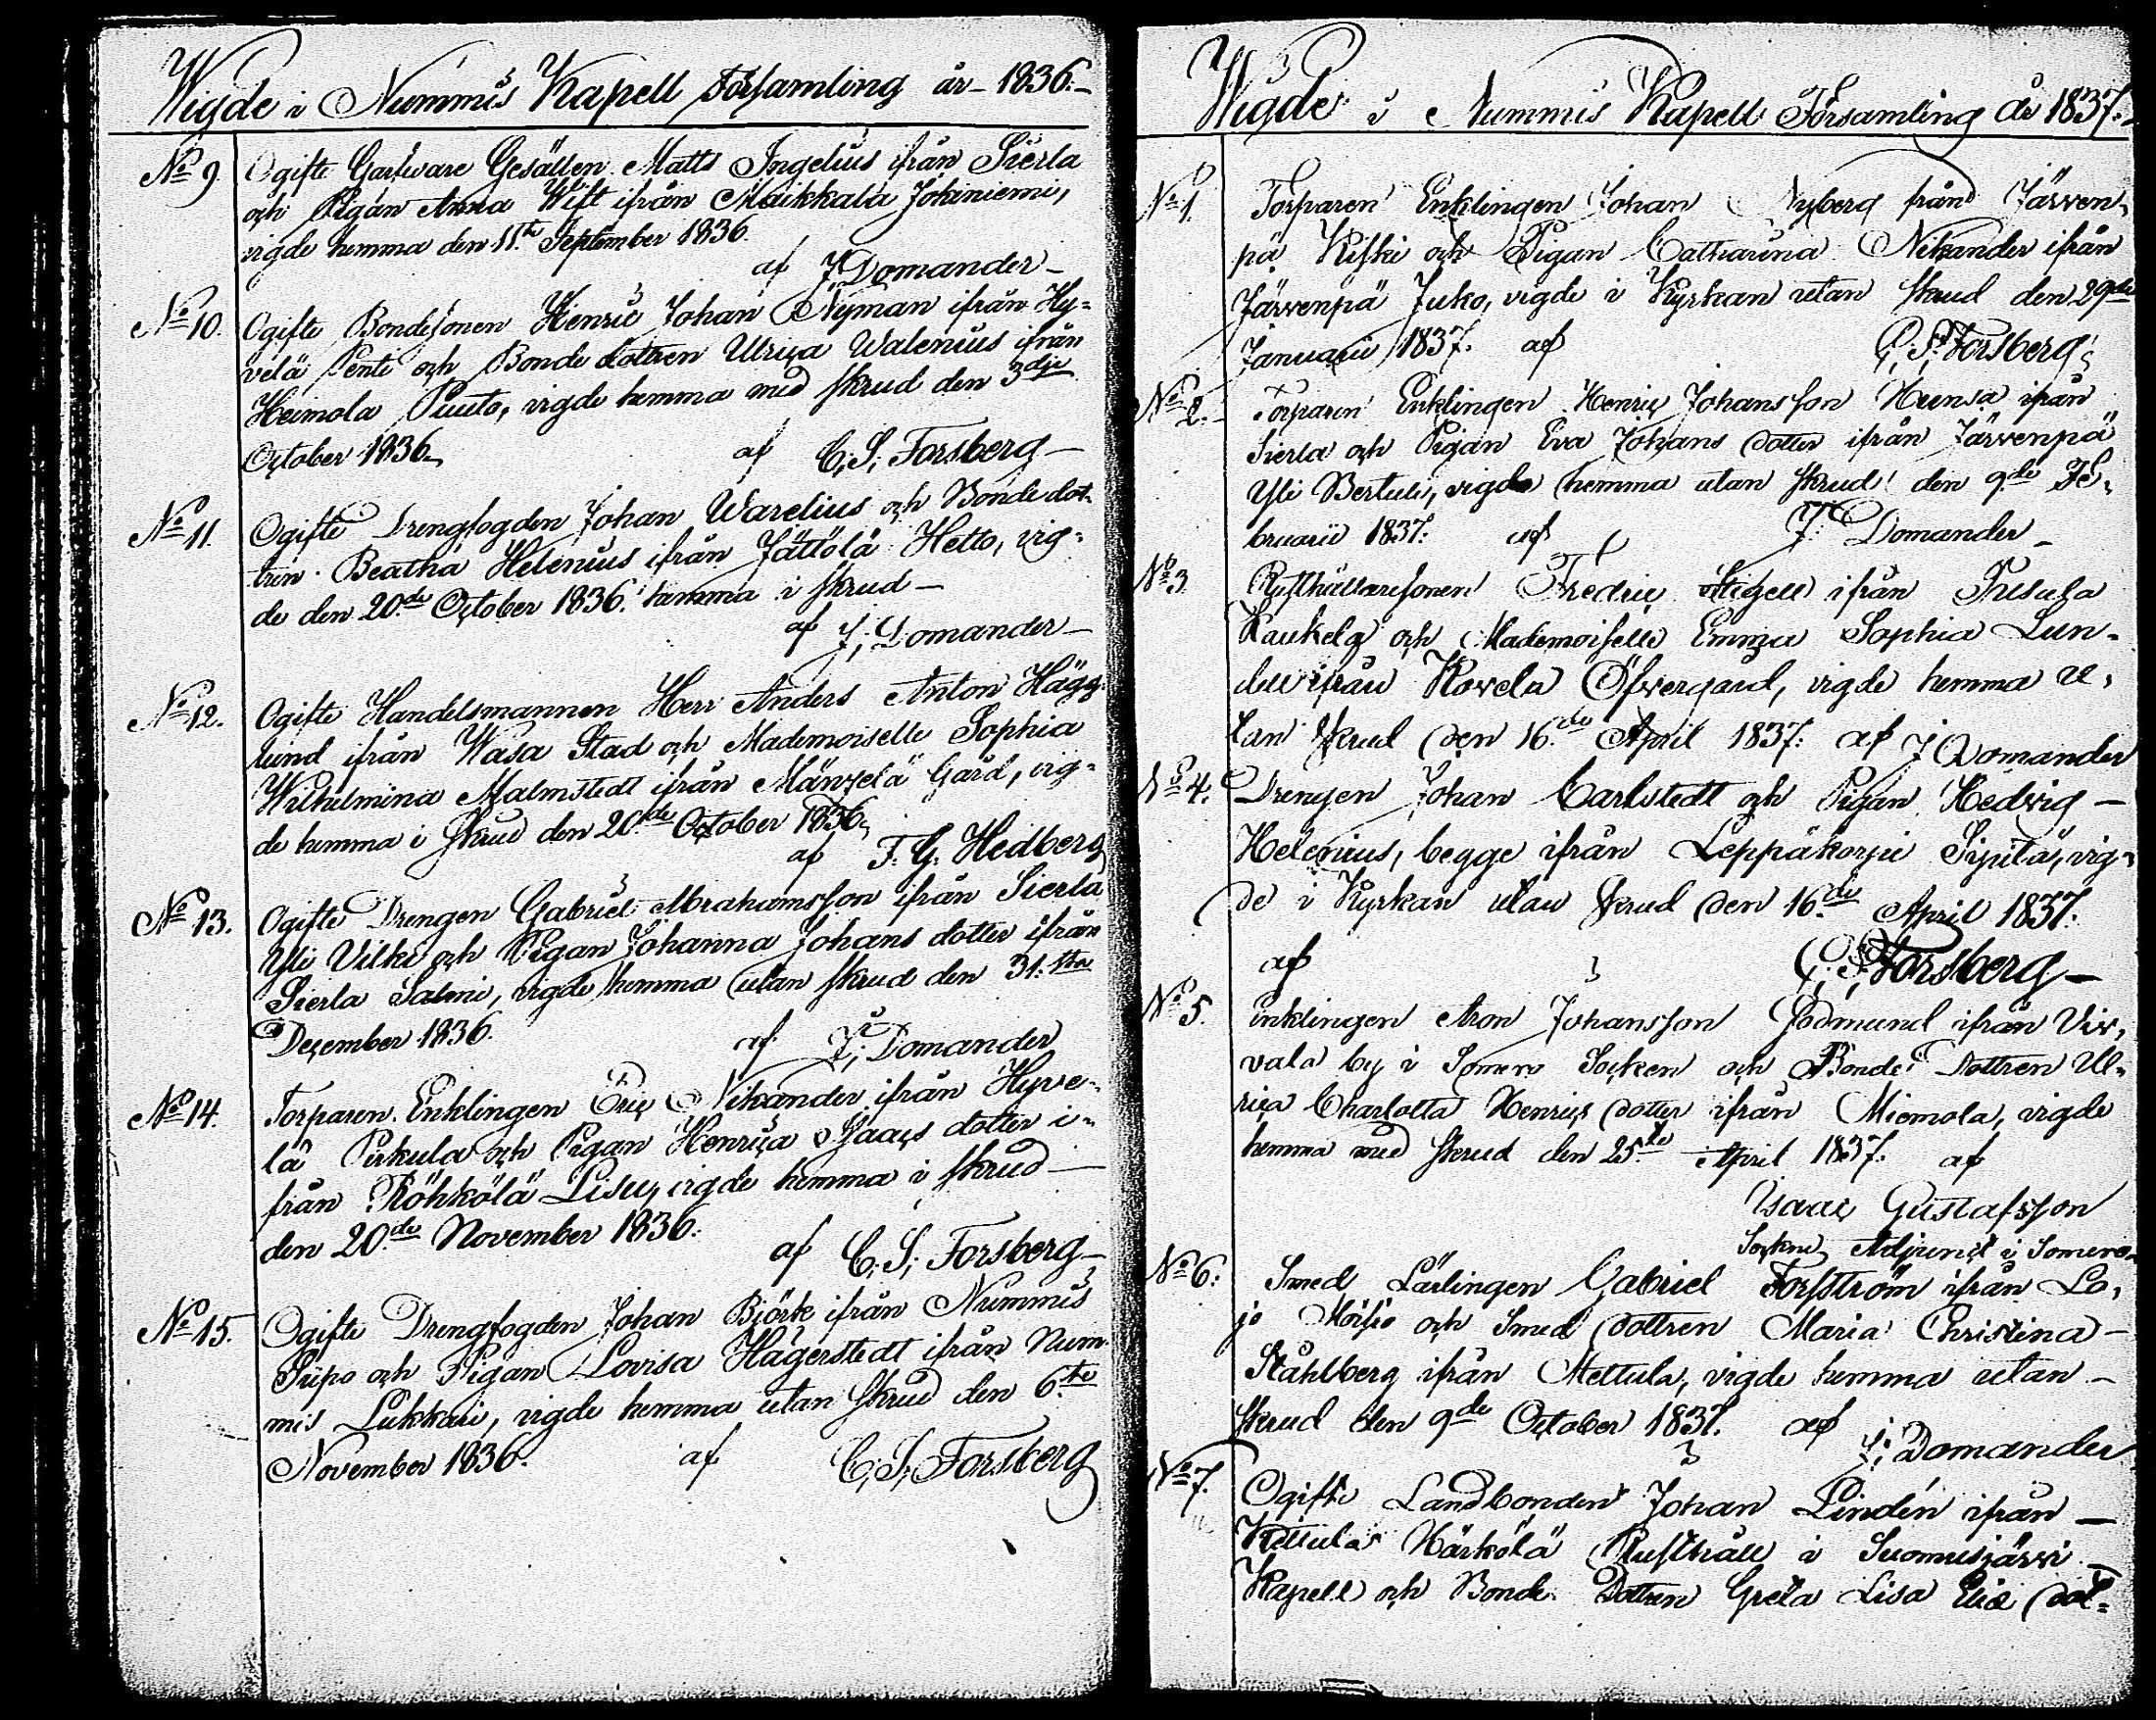 Wigde i Nummis Kapell Församling år 1836.
No 9. Ogifte Garfware Gesällen Matts Ingelius ifrån Sierla
och Pigan Anna Wift ifrån Maikkala Jokiniemi,
vigde hemma den 11te September 1836.
af J. Domander
No 10. Ogifte Bondesonen Henric Johan Nyman ifrån Hy-
velä Pente och Bonde dottren Ulrica Walenius ifrån
Heimola Puuto, vigde hemma med skrud den 3dje
October 1836. af C. S. Forsberg
No 11. Ogifte Drengfogden Johan Warelius och Bonde dot-
tren Beatha Helenius ifrån Jättölä Hetto, vig-
de den 20de October 1836. hemma i skrud
af J. Domander
No 12. Ogifte Handelsmannen Herr Anders Anton Hägg-
lund ifrån Wasa Stad och Mademoiselle Sophia
Wilhelmina Malmstedt ifrån Gård, vig-
de hemma i skrud den 20de October 1836.
af F. G. Hedberg
No 13. Ogifte Drengen Gabriel Abrahamsson ifrån Sierla
Yli Vilki och Pigan Johanna Johans dotter ifrån
Sierla Salmi, vigde hemma utan skrud den 31sta
December 1836. af J. Domander
No 14. Torparen Enklingen Eric Nikander ifrån Hyve-
lä Pirkula och Pigan Henrica Isaacs dotter i-
från Röhkölä Lisu, vigde hemma i skrud
den 20de November 1836. af C. S. Forsberg
No 15. Ogifte Drengfogden Johan Björk ifrån Nummis
Pripo och Pigan Lovisa Hägerstedt ifrån Num-
mis Lukkari, vigde hemma utan skrud den 6te
November 1836. af C. S. Forsberg
Wigde i Nummis Kapell Församling år 1837.
No 1. Torparen Enklingen Johan Nyberg från Järven-
pä Kiski och Pigan Catharina Nikander ifrån
Järvenpä Juko, vigde i Kyrkan utan skrud den 29de
Januarii 1837. af C. S. Forsberg
No 2. Torparen Enklingen Henric Johansson Hunsa ifrån
Sierla och Pigan Eva Johans dotter ifrån Järvenpä
Yli Bertule, vigde hemma utan skrud den 9de Fe-
bruarii 1837. af J. Domander
No 3. Rusthållaresonen Fredric Stigell ifrån Pusula
Kaukela och Mademoiselle Emma Sophia Lun-
dell ifrån Kovela Öfvergård, vigde hemma u-
tan skrud den 16de April 1837. af J Domander
No 4. Drengen Johan Carlstedt och Pigan Hedvig
Helenius, begge ifrån Leppäkorpi Sipilä, vig-
de i Kyrkan utan skrud den 16de April 1837.
af C. S. Forsberg
No 5. Enklingen Aron Johansson Södmund ifrån Vir-
vala by i Somero Socken och Bonde Dottren Ul-
rica Charlotta Henrics dotter ifrån Miemola, vigde
hemma med skrud den 25te April 1837. af
Isaac Gustafsson
Sockne Adjunct i Somero
No 6. Smed Lärlingen Gabriel Forsström ifrån Lo-
jo Moisio och Smed dottren Maria Christina
Ståhlberg ifrån Mettula, vigde hemma utan
skrud den 9de October 1837. af
J. Domander
No 7. Ogifte Landbonden Johan Lindén ifrån
Kettula Härkölä Rusthåll i Suomusjärvi
Kapell och Bonde Dottren Greta Lisa Eliæ dot-